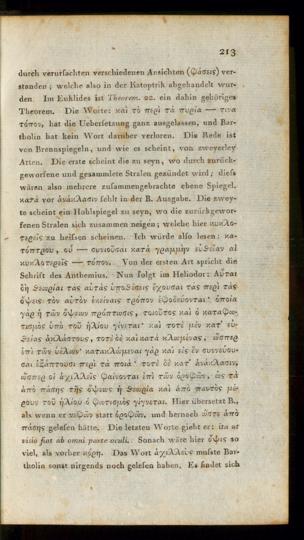 213
durch verursachten verschiedenen Ansichten (φάσεις) ver-
standen, welche also in der Katoptrik abgehandelt wur-
den. Im Euklides ist Theorem. 22. ein dahin gehöriges
Theorem. Die Worte: καὶ τὸ περὶ τὰ πυρία — τινα
τόπον, hat die Uebersetzung ganz ausgelassen, und Bar-
tholin hat kein Wort darüber verloren. Die Rede ist
von Brennspiegeln, und wie es scheint, von zweyerley
Arten. Die erste scheint die zu seyn, wo durch zurück-
geworfene und gesammlete Stralen gezündet wird; dieſs
wären also mehrere zusammengebrachte ebene Spiegel.
κατὰ vor ἀνάκλασιν fehlt in der B. Ausgabe. Die zwey-
te scheint ein Hohlspiegel zu seyn, wo die zurückgewor-
fenen Stralen sich zusammen neigen; welche hier κυκλο-
τερεῖς zu heiſsen scheinen. Ich würde also lesen: κα-
τόπτρου, οὗ — συνιοῦσαι κατὰ γραμμὴν εὐθεῖαν αἱ
κυκλοτερεῖς — τόπον. Von der ersten Art spricht die
Schrift des Anthemius. Nun folgt im Heliodor: Αὗται
δὴ θεωρίαι τὰς αὐτὰς ὑποθέσεις ἔχουσαι τὰς περὶ τὰς
ὄψεις τὸν αὐτὸν ἐκείναις τρόπον ἐφοδεύονται· ὁποία
γὰρ ἡ τῶν ὄψεων πρόπτωσις, τοιοῦτος καὶ ὁ καταφω-
τισμὸς ὑπὸ τοῦ ἡλίου γίνεται· καὶ ποτὲ μὲν κατ᾽ εὐ-
θείας ἀκλάστους, ποτὲ δὲ καὶ κατὰ κλωμένας, ὥσπερ
ἐπὶ τῶν ὑέλων· κατακλώμεναι γὰρ καὶ εἰς ἓν συννεύου-
σαι ἐξάπτουσι περὶ τὰ ποιά· ποτὲ δὲ κατ᾽ ἀνάκλασιν
ὥσπερ οἱ ἀχιλλεῖς φαίνονται ἐπὶ τῶν ὀροφῶν, ὡς τὰ
ἀπὸ πάσης τῆς ὄψεως ἡ θεωρία καὶ ἀπὸ παντὸς μέ-
ρους τοῦ ἡλίου ὁ φωτισμὸς γίγνεται. Hier übersetzt B.,
als wenn er κυφῶν statt ὀροφῶν, und hernach ὥστε ἀπὸ
πάσης gelesen hätte. Die letzten Worte giebt er: ita ut
visio fiat ab omni parte oculi. Sonach wäre hier ὄψις so
viel, als vorher κόρη. Das Wort ἀχιλλεὺς muſste Bar-
tholin sonst nirgends noch gelesen haben. Es findet sich